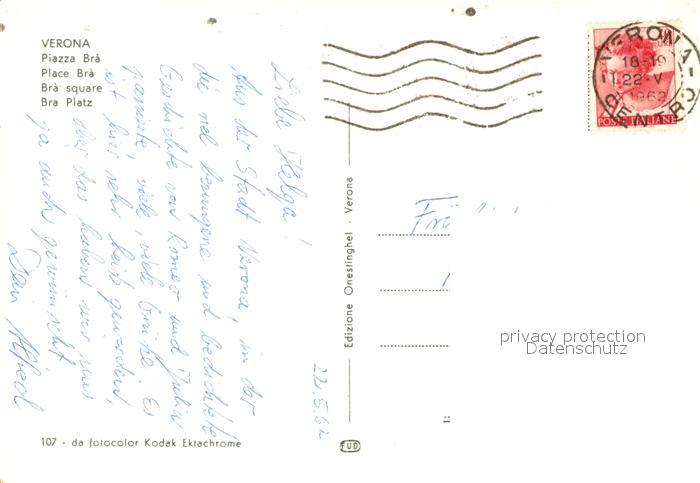 VERONA
Piazza Brà
Place Brà
Brà square
Bra Platz
Liebe Helga!
Aus der Stadt Verona, in der
die viel besungene und bedichtete
Geschichte von Romeo und Julia
passierte, viele, viele Grüße. Es
ist hier sehr heiß geworden,
aber das haben wir uns
ja auch gewünscht
Dein Alfred
22.5.62
107 - da fotocolor Kodak Ektachrome
Edizione Onestinghel - Verona
FUD
VERONA
18-19
22-V
1962
POSTE ITALIANE
privacy protection
Datenschutz